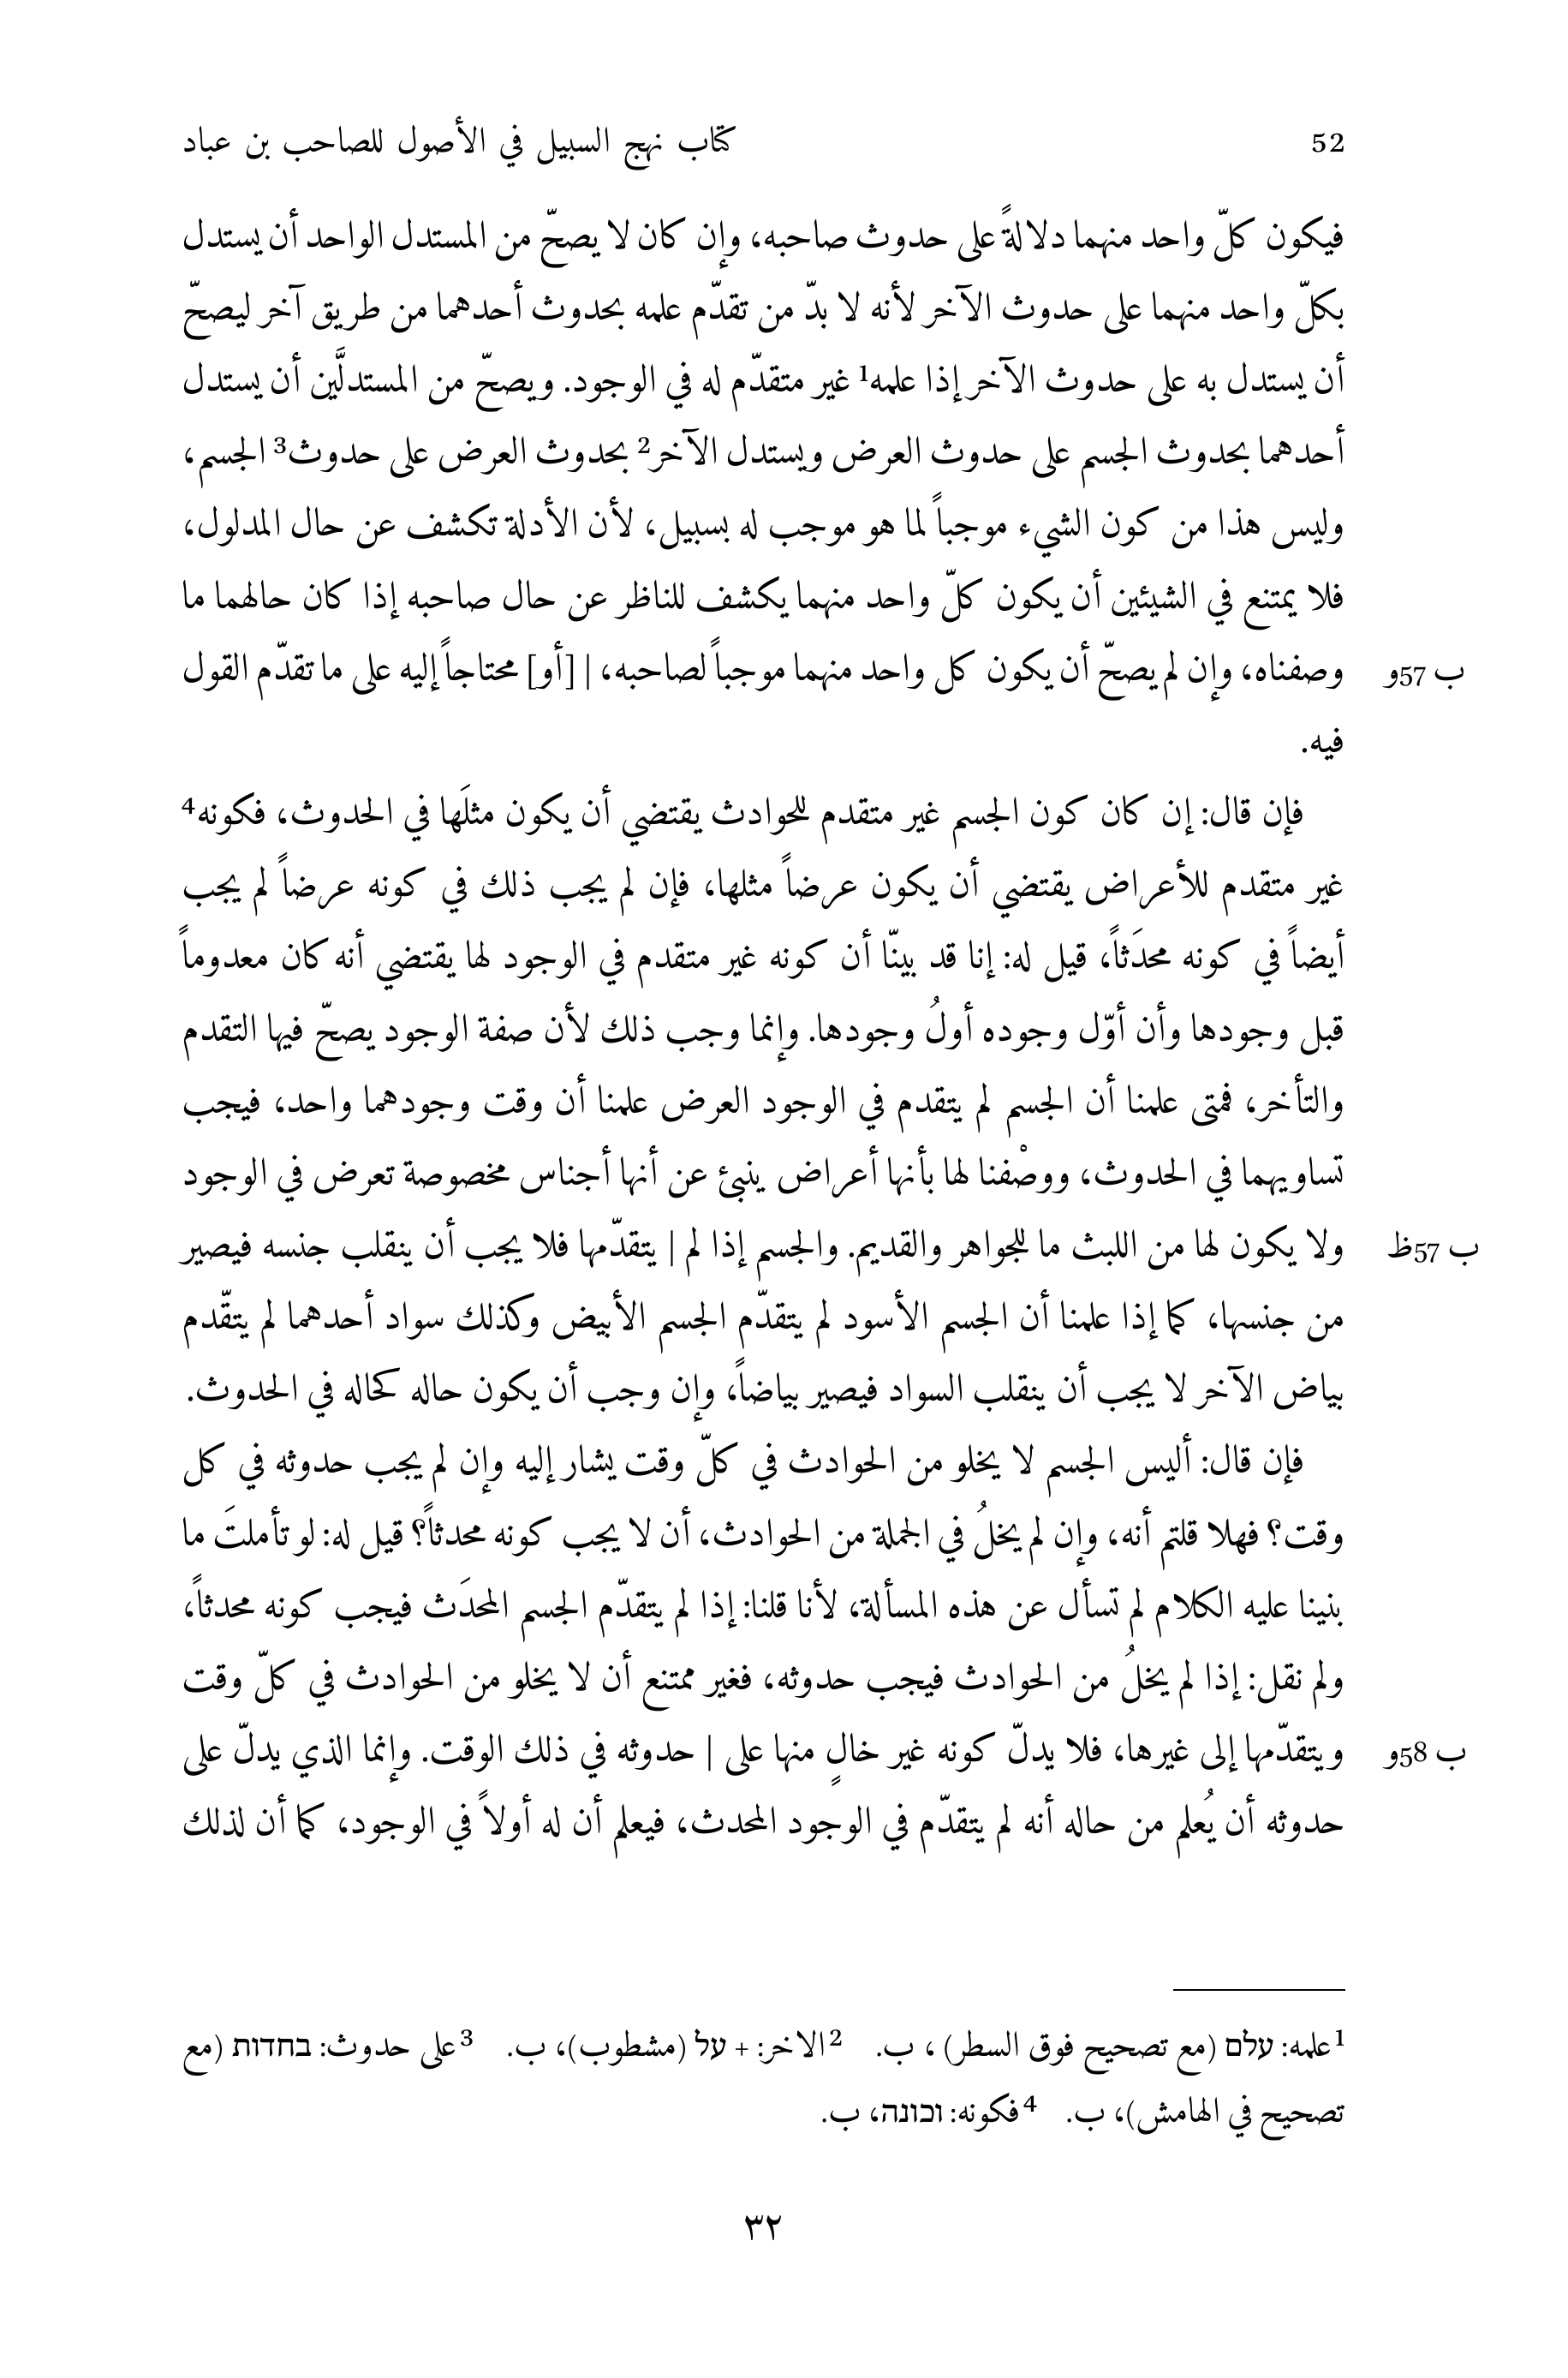 52 كتاب نهج السبيل في الأصول للصاحب بن عباد
فيكون كلّ واحد منهما دلالةً على حدوث صاحبه، وإن كان لا يصحّ من المستدل الواحد أن يستدل
بكلّ واحد منهما على حدوث الآخر لأنه لا بدّ من تقدّم علمه بحدوث أحدهما من طريق آخر ليصحّ
أن يستدل به على حدوث الآخر إذا علمه1 غير متقدّم له في الوجود. ويصحّ من المستدلَّين أن يستدل
أحدهما بحدوث الجسم على حدوث العرض ويستدل الآخر2 بحدوث العرض على حدوث3 الجسم،
وليس هذا من كون الشيء موجباً لما هو موجب له بسبيل، لأن الأدلة تكشف عن حال المدلول،
فلا يمتنع في الشيئين أن يكون كلّ واحد منهما يكشف للناظر عن حال صاحبه إذا كان حالهما ما
ب 57و وصفناه، وإن لم يصحّ أن يكون كل واحد منهما موجباً لصاحبه، | [أو] محتاجاً إليه على ما تقدّم القول
فيه.
فإن قال: إن كان كون الجسم غير متقدم للحوادث يقتضي أن يكون مثلَها في الحدوث، فكونه4
غير متقدم للأعراض يقتضي أن يكون عرضاً مثلها، فإن لم يجب ذلك في كونه عرضاً لم يجب
أيضاً في كونه محدَثاً، قيل له: إنا قد بينّا أن كونه غير متقدم في الوجود لها يقتضي أنه كان معدوماً
قبل وجودها وأن أوّل وجوده أولُ وجودها. وإنما وجب ذلك لأن صفة الوجود يصحّ فيها التقدم
والتأخر، فمتى علمنا أن الجسم لم يتقدم في الوجود العرض علمنا أن وقت وجودهما واحد، فيجب
تساويهما في الحدوث، ووصْفنا لها بأنها أعراض ينبئ عن أنها أجناس مخصوصة تعرض في الوجود
ب 57ظ ولا يكون لها من اللبث ما للجواهر والقديم. والجسم إذا لم | يتقدّمها فلا يجب أن ينقلب جنسه فيصير
من جنسها، كما إذا علمنا أن الجسم الأسود لم يتقدّم الجسم الأبيض وكذلك سواد أحدهما لم يتقّدم
بياض الآخر لا يجب أن ينقلب السواد فيصير بياضاً، وإن وجب أن يكون حاله كحاله في الحدوث.
فإن قال: أليس الجسم لا يخلو من الحوادث في كلّ وقت يشار إليه وإن لم يجب حدوثه في كل
وقت؟ فهلا قلتم أنه، وإن لم يخلُ في الجملة من الحوادث، أن لا يجب كونه محدثاً؟ قيل له: لو تأملتَ ما
بنينا عليه الكلام لم تسأل عن هذه المسألة، لأنا قلنا: إذا لم يتقدّم الجسم المحدَث فيجب كونه محدثاً،
ولم نقل: إذا لم يخلُ من الحوادث فيجب حدوثه، فغير ممتنع أن لا يخلو من الحوادث في كلّ وقت
ب 58و ويتقدّمها إلى غيرها، فلا يدلّ كونه غير خالٍ منها على | حدوثه في ذلك الوقت. وإنما الذي يدلّ على
حدوثه أن يُعلم من حاله أنه لم يتقدّم في الوجود المحدث، فيعلم أن له أولاً في الوجود، كما أن لذلك
1 علمه: עלם (مع تصحيح فوق السطر) ، ب. 2 الاخر: + על (مشطوب)، ب. 3 على حدوث: בחדות (مع
تصحيح في الهامش)، ب. 4 فكونه: וכונה، ب.
٣٢